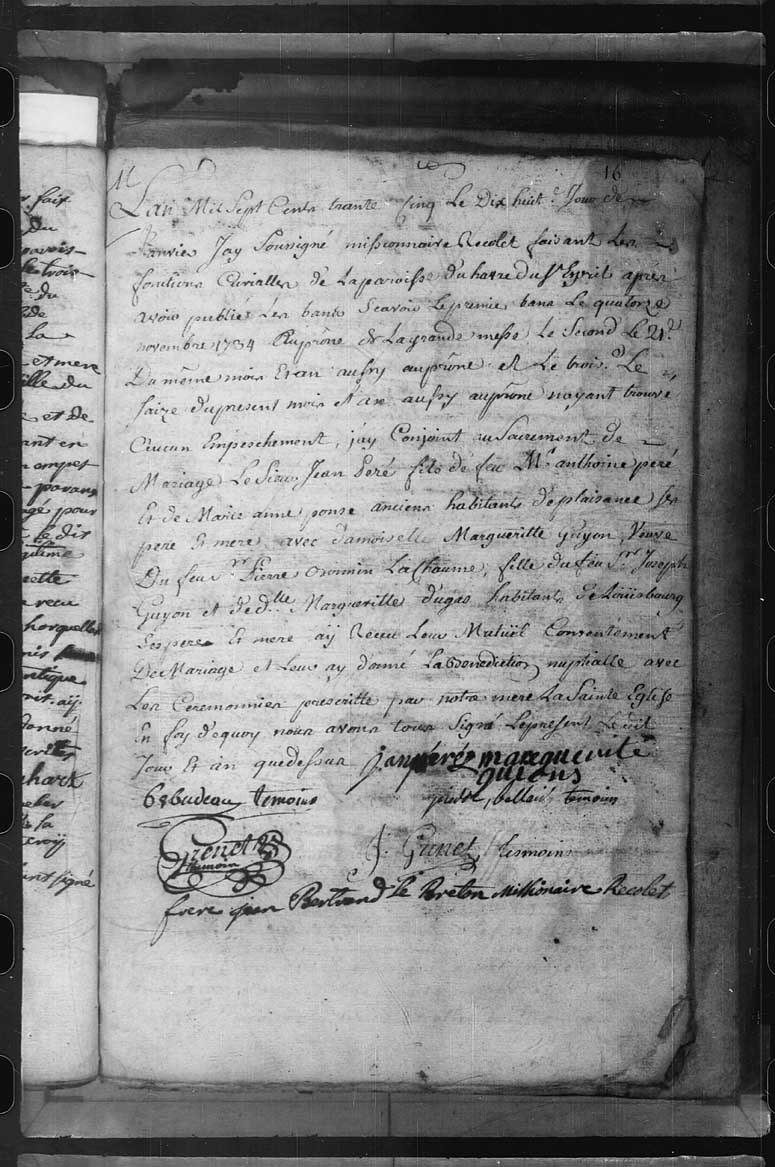 M
16
Lan Mil Sept Cents trante Cinq Le Dix huit.e Jour de
Janvier Jay Sousigné missionnaire Recolet faisant Les
fontions Curialles de Laparoisse du havre du St Esprit apres
avoir publié Les bants Scavoir Lepremier bans Le quatorze
novembre 1734 Auprône de Lagrande messe Le Second Le 21.e
Du même mois Et an aussy auprône et Le trois.e Le
saize dupresent mois et an aussy auprône nayant trouvé
Aucun Empeschement, jay Conjoint au Sacrement de
Mariage Le Sieur Jean Peré fils de feu Mr anthoine peré
Et de Marie anne ponse anciens habitants de plaisance ses
pere Et mere, avec damoiselle Margueritte Guyon, Veuve
Du feu Sr Pierre Onfroy Lachaume, fille du feu Sr Joseph
Guyon et de dlle Margueritte dugas habitants de Loüisbourg
Ses pere Et mere aÿ Receu Leur Mutüel Consentement
De Mariage et Leur ay donné La Benediction nuptialle avec
Les Ceremonnies prescritte par notre mere La Sainte Eglise
En foy dequoy nous avons tous Signé Lepresent Le dit
Jour Et an quedessus
janperés marguerite
guions
Bebudeau temoins
pierre, bellair temoin
Grenet
temoin
J. Grenet temoin
frere jean Bertrand Le Breton Missionaire Recolet
faix
du
Le trois
du
de
La
et mere
ille du
e et de
ant en
pour
Le dit
gitime
cette
receu
donné
La
ont signé